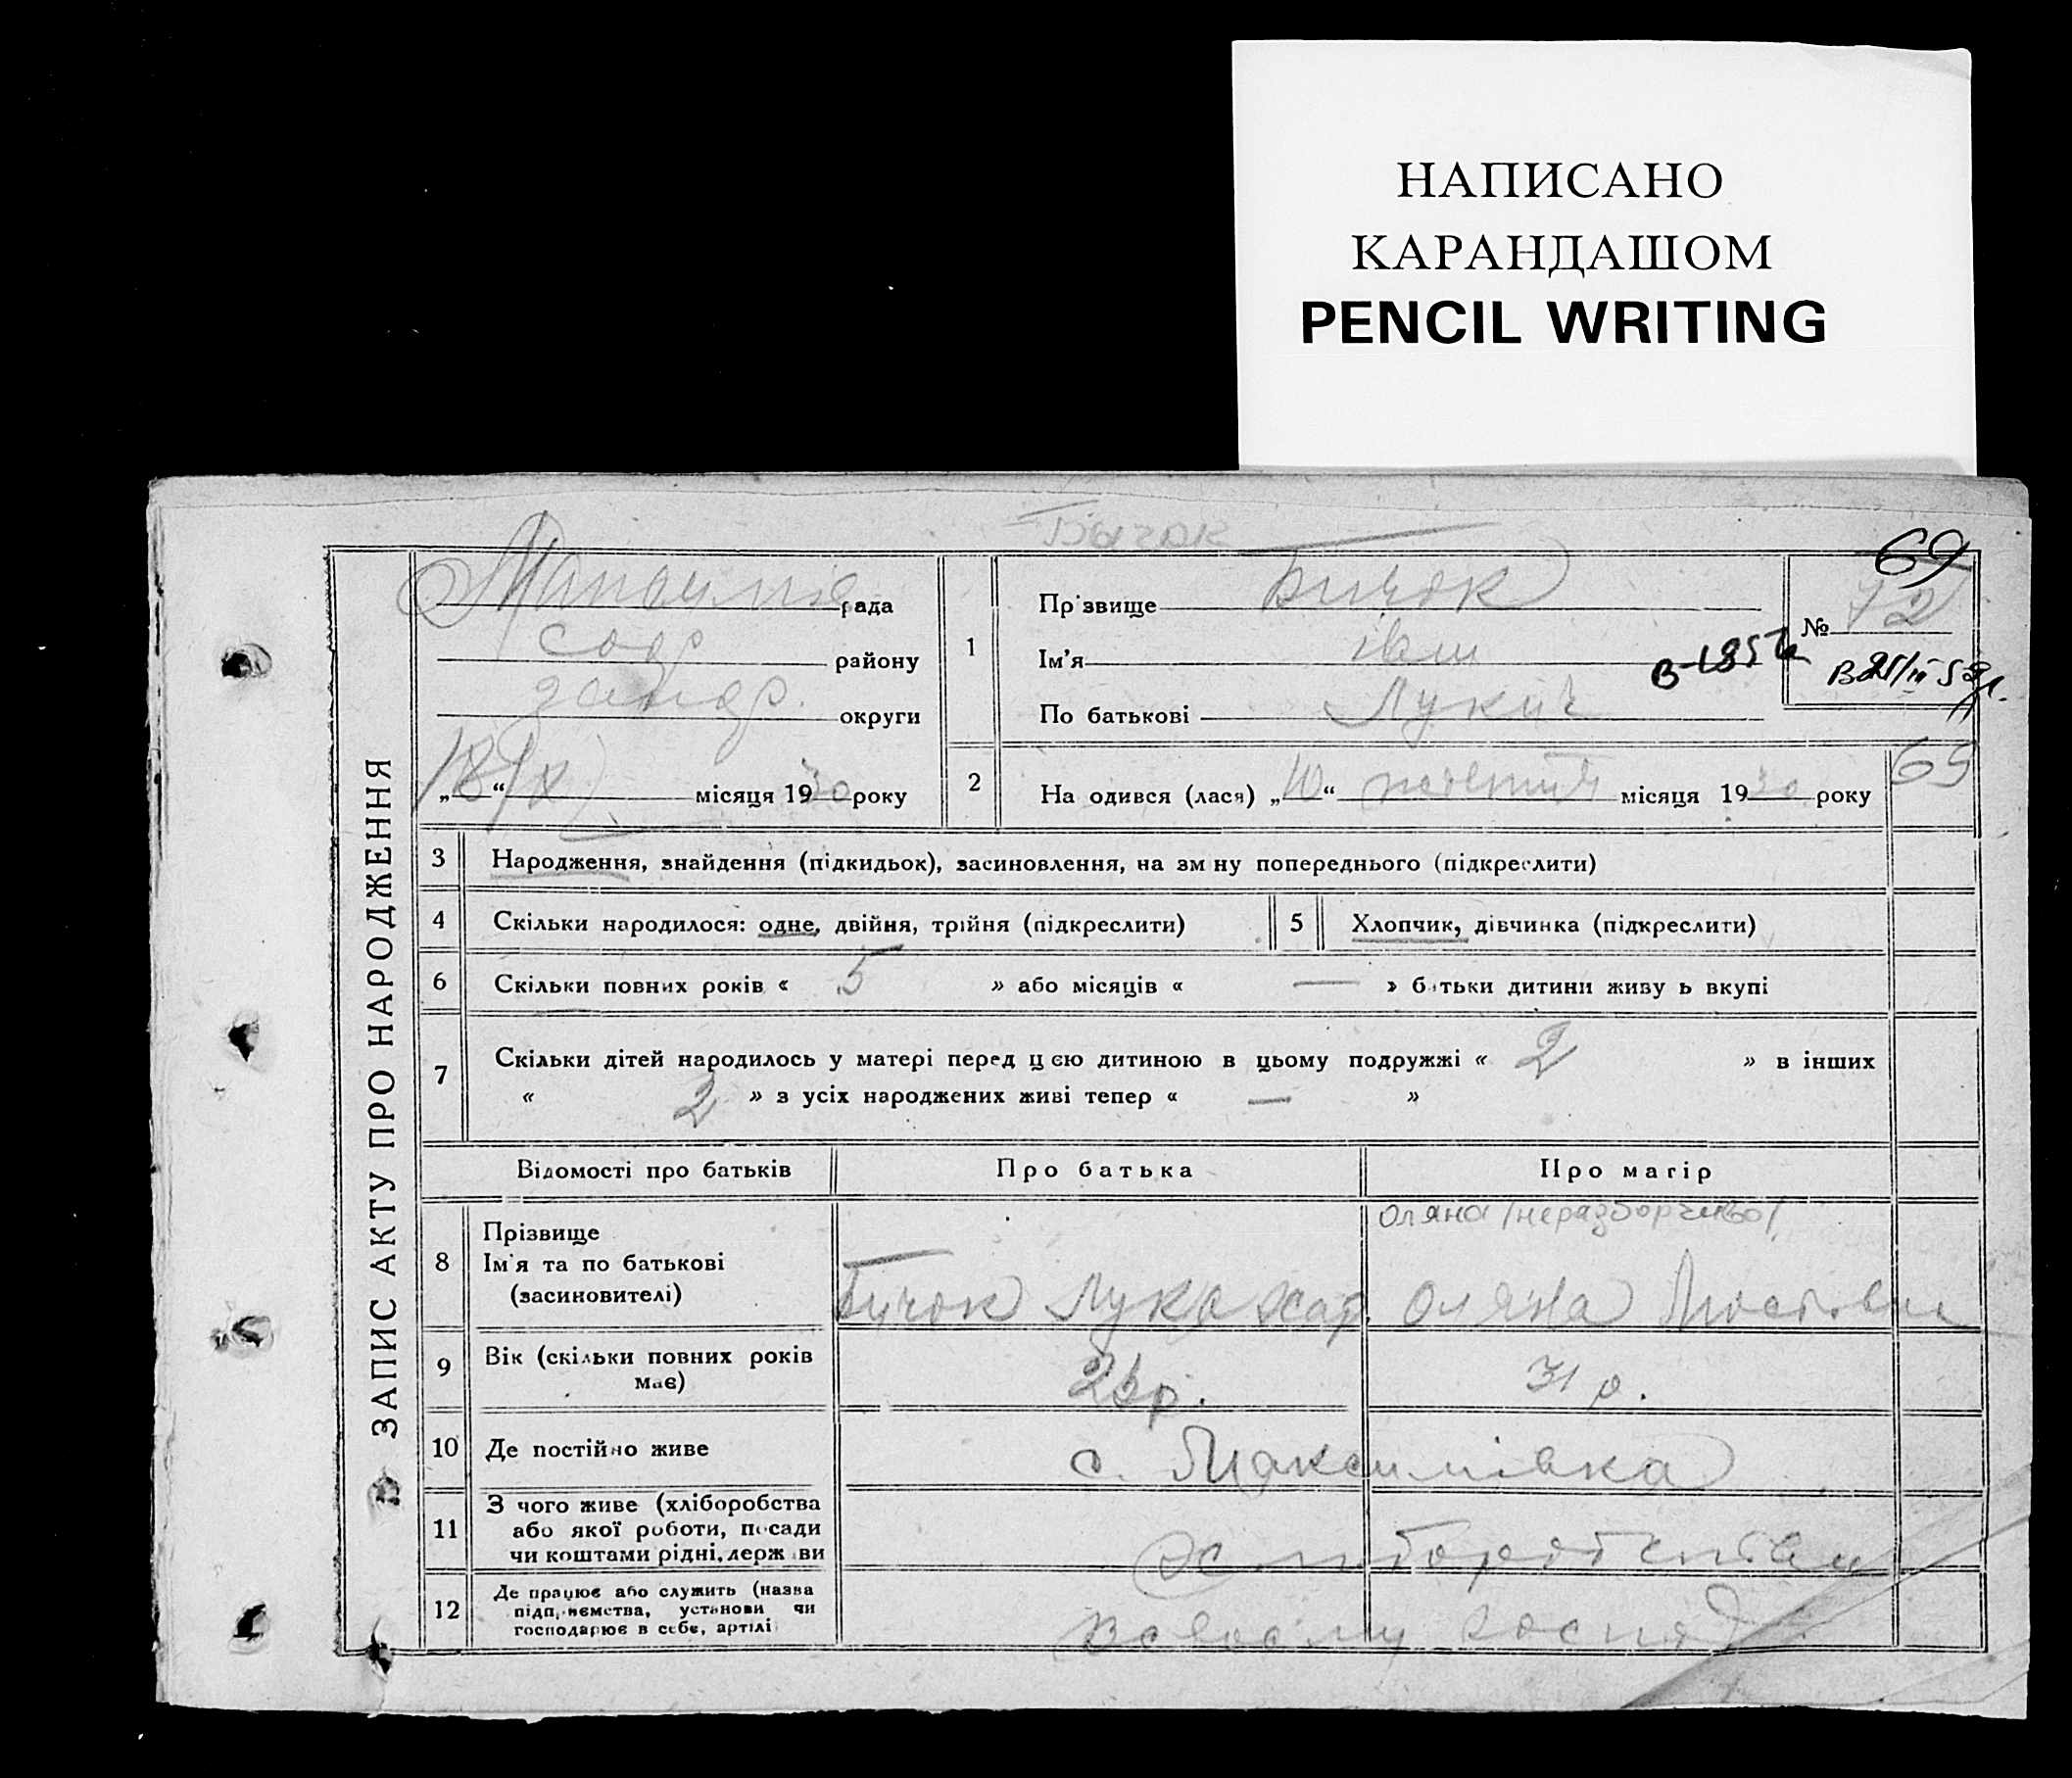 НАПИСАНО
КАРАНДАШОМ
PENCIL WRITING
Бычок
69
рада
района
округи
„18/X“ місяця 1930 року
ЗАПИС АКТУ ПРО НАРОДЖЕННЯ
1
Прізвище Бичок
Ім'я Іван
По батькові Лукич
№ 72
2 На одився (лася) „10“ жовтня місяця 1930 року
69
3 Народження, знайдення (підкидьок), засиновлення, на зм ну попереднього (підкреслити)
4 Скільки народилося: одне, двійня, трійня (підкреслити) 5 Хлопчик, дівчинка (підкреслити)
6 Скільки повних років « 5 » або місяців « — » батьки дитини живуть вкупі
7 Скільки дітей народилось у матері перед цією дитиною в цьому подружжі « 2 » в інших
« 2 » з усіх народжених живі тепер « — »
Відомості про батьків Про батька Про матір
Оляна /неразборчиво/
8 Прізвище
Ім'я та по батькові
(засиновителі)
Бичок Лука Оляна
9 Вік (скільки повних років
має)
31 р.
10 Де постійно живе с. Максимівка
11 З чого живе (хліборобства
або якої роботи, посади
чи коштами рідні, держави
12 Де працює або служить (назва
підприємства, установи чи
господарює в себе, артілі
в своєму господ.